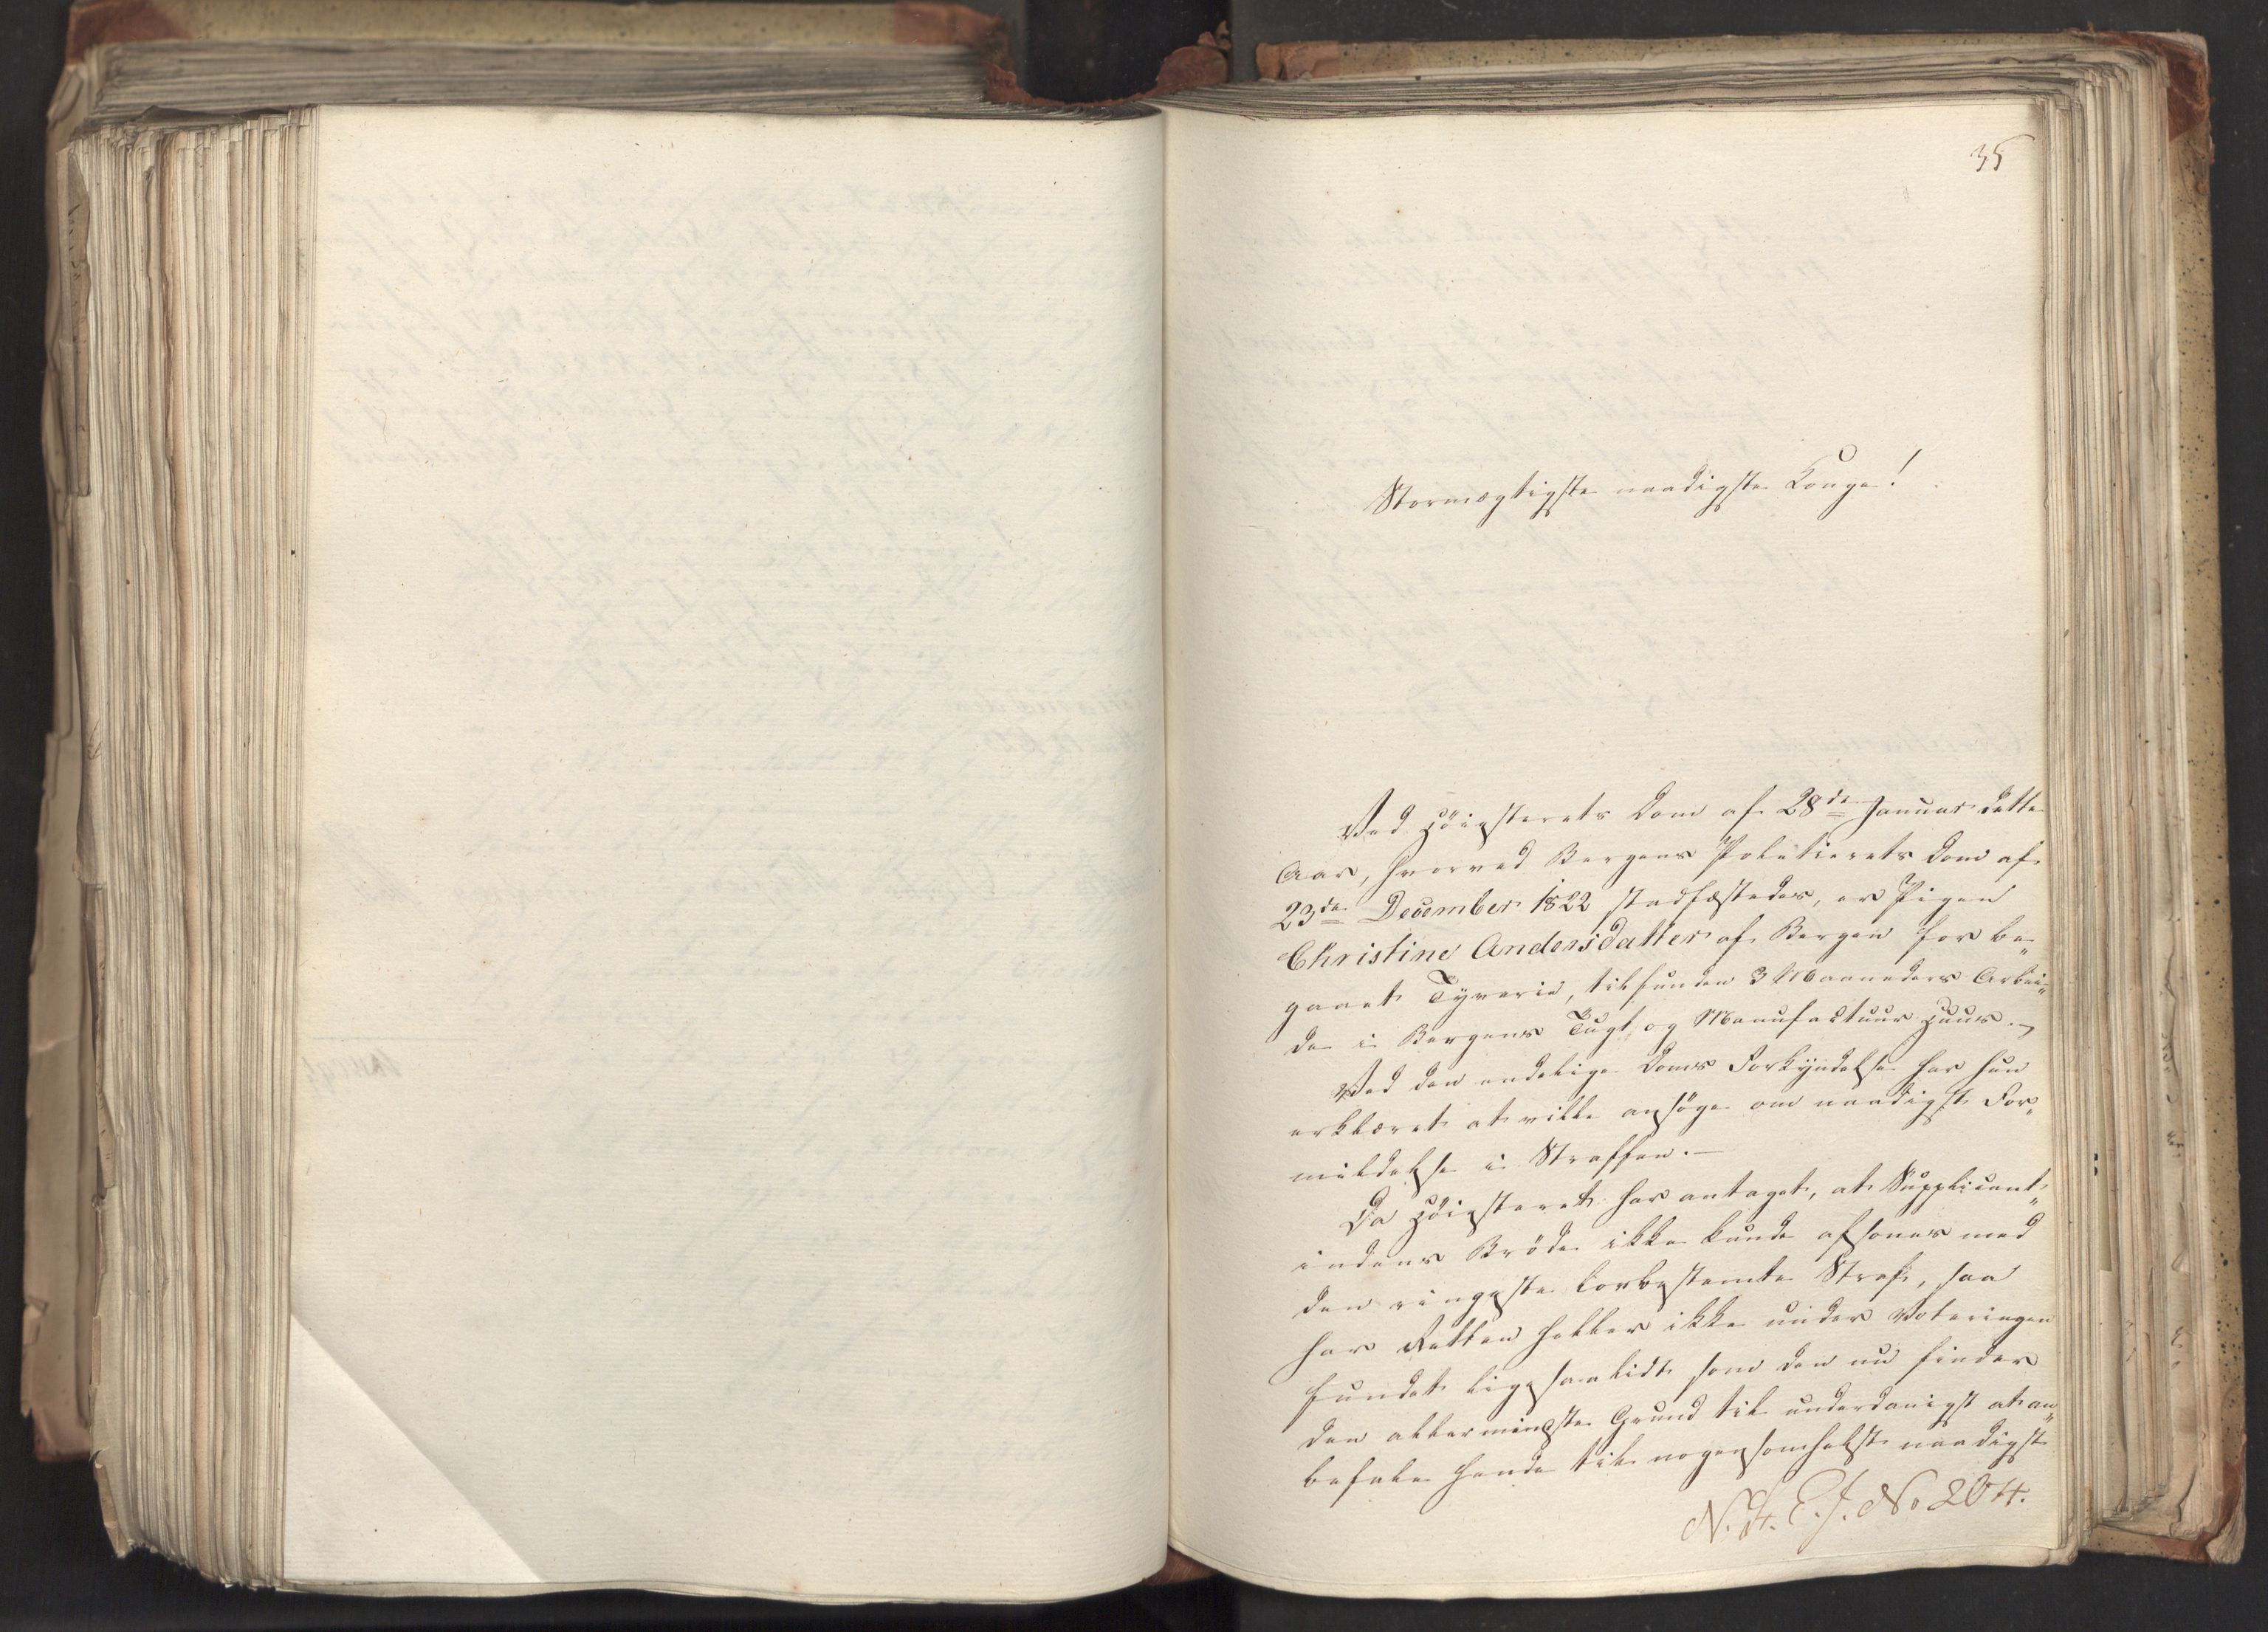 35
Stormægtigste naadigste Konge!
Ved Höiesterets Dom af 28de Januar dette
Aar, hvorved Bergens Politierets Dom af
23de December 1822 stadfæstedes, er Pigen
Christine Andersdatter af Bergen for be„
gaaet Tyverie, tilfunden 3 Maaneders Arbei„
de i Bergens Tugt og Manufactuur Huus.—
Ved den endelige Doms Forkyndelse har hun
erklæret at ville ansöge om naadigst For„
mildelse i Straffen.—
Da Höiesteret har antaget, at Supplicant„
indens Bröde ikke kunde afsones med
den ringeste lovbestemte Straf, saa
har Retten heller ikke under Voteringen
fundet ligesaalidt som den nu finder
den allermindste Grund til underdanigst at an„
befale hende til nogensomhelst naadigst
N. H. E. J. No 204.